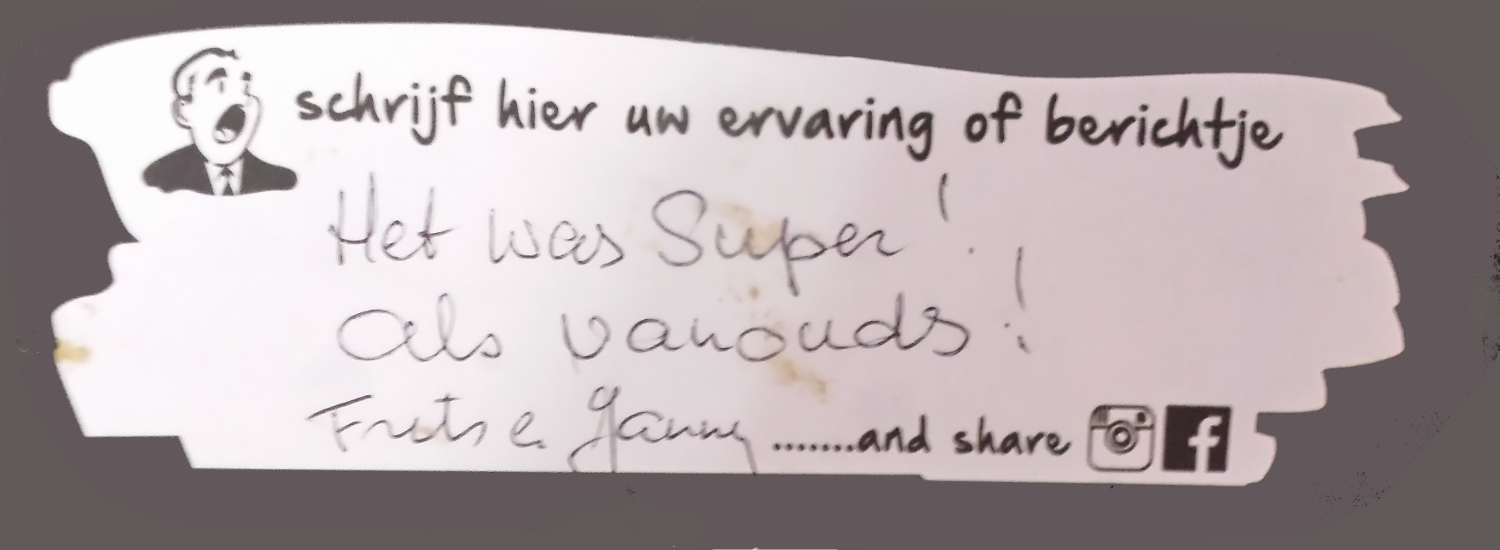 schrijf hier uw ervaring of berichtje
Het was Super!
als vanouds!
Frits e. Janny .......and share